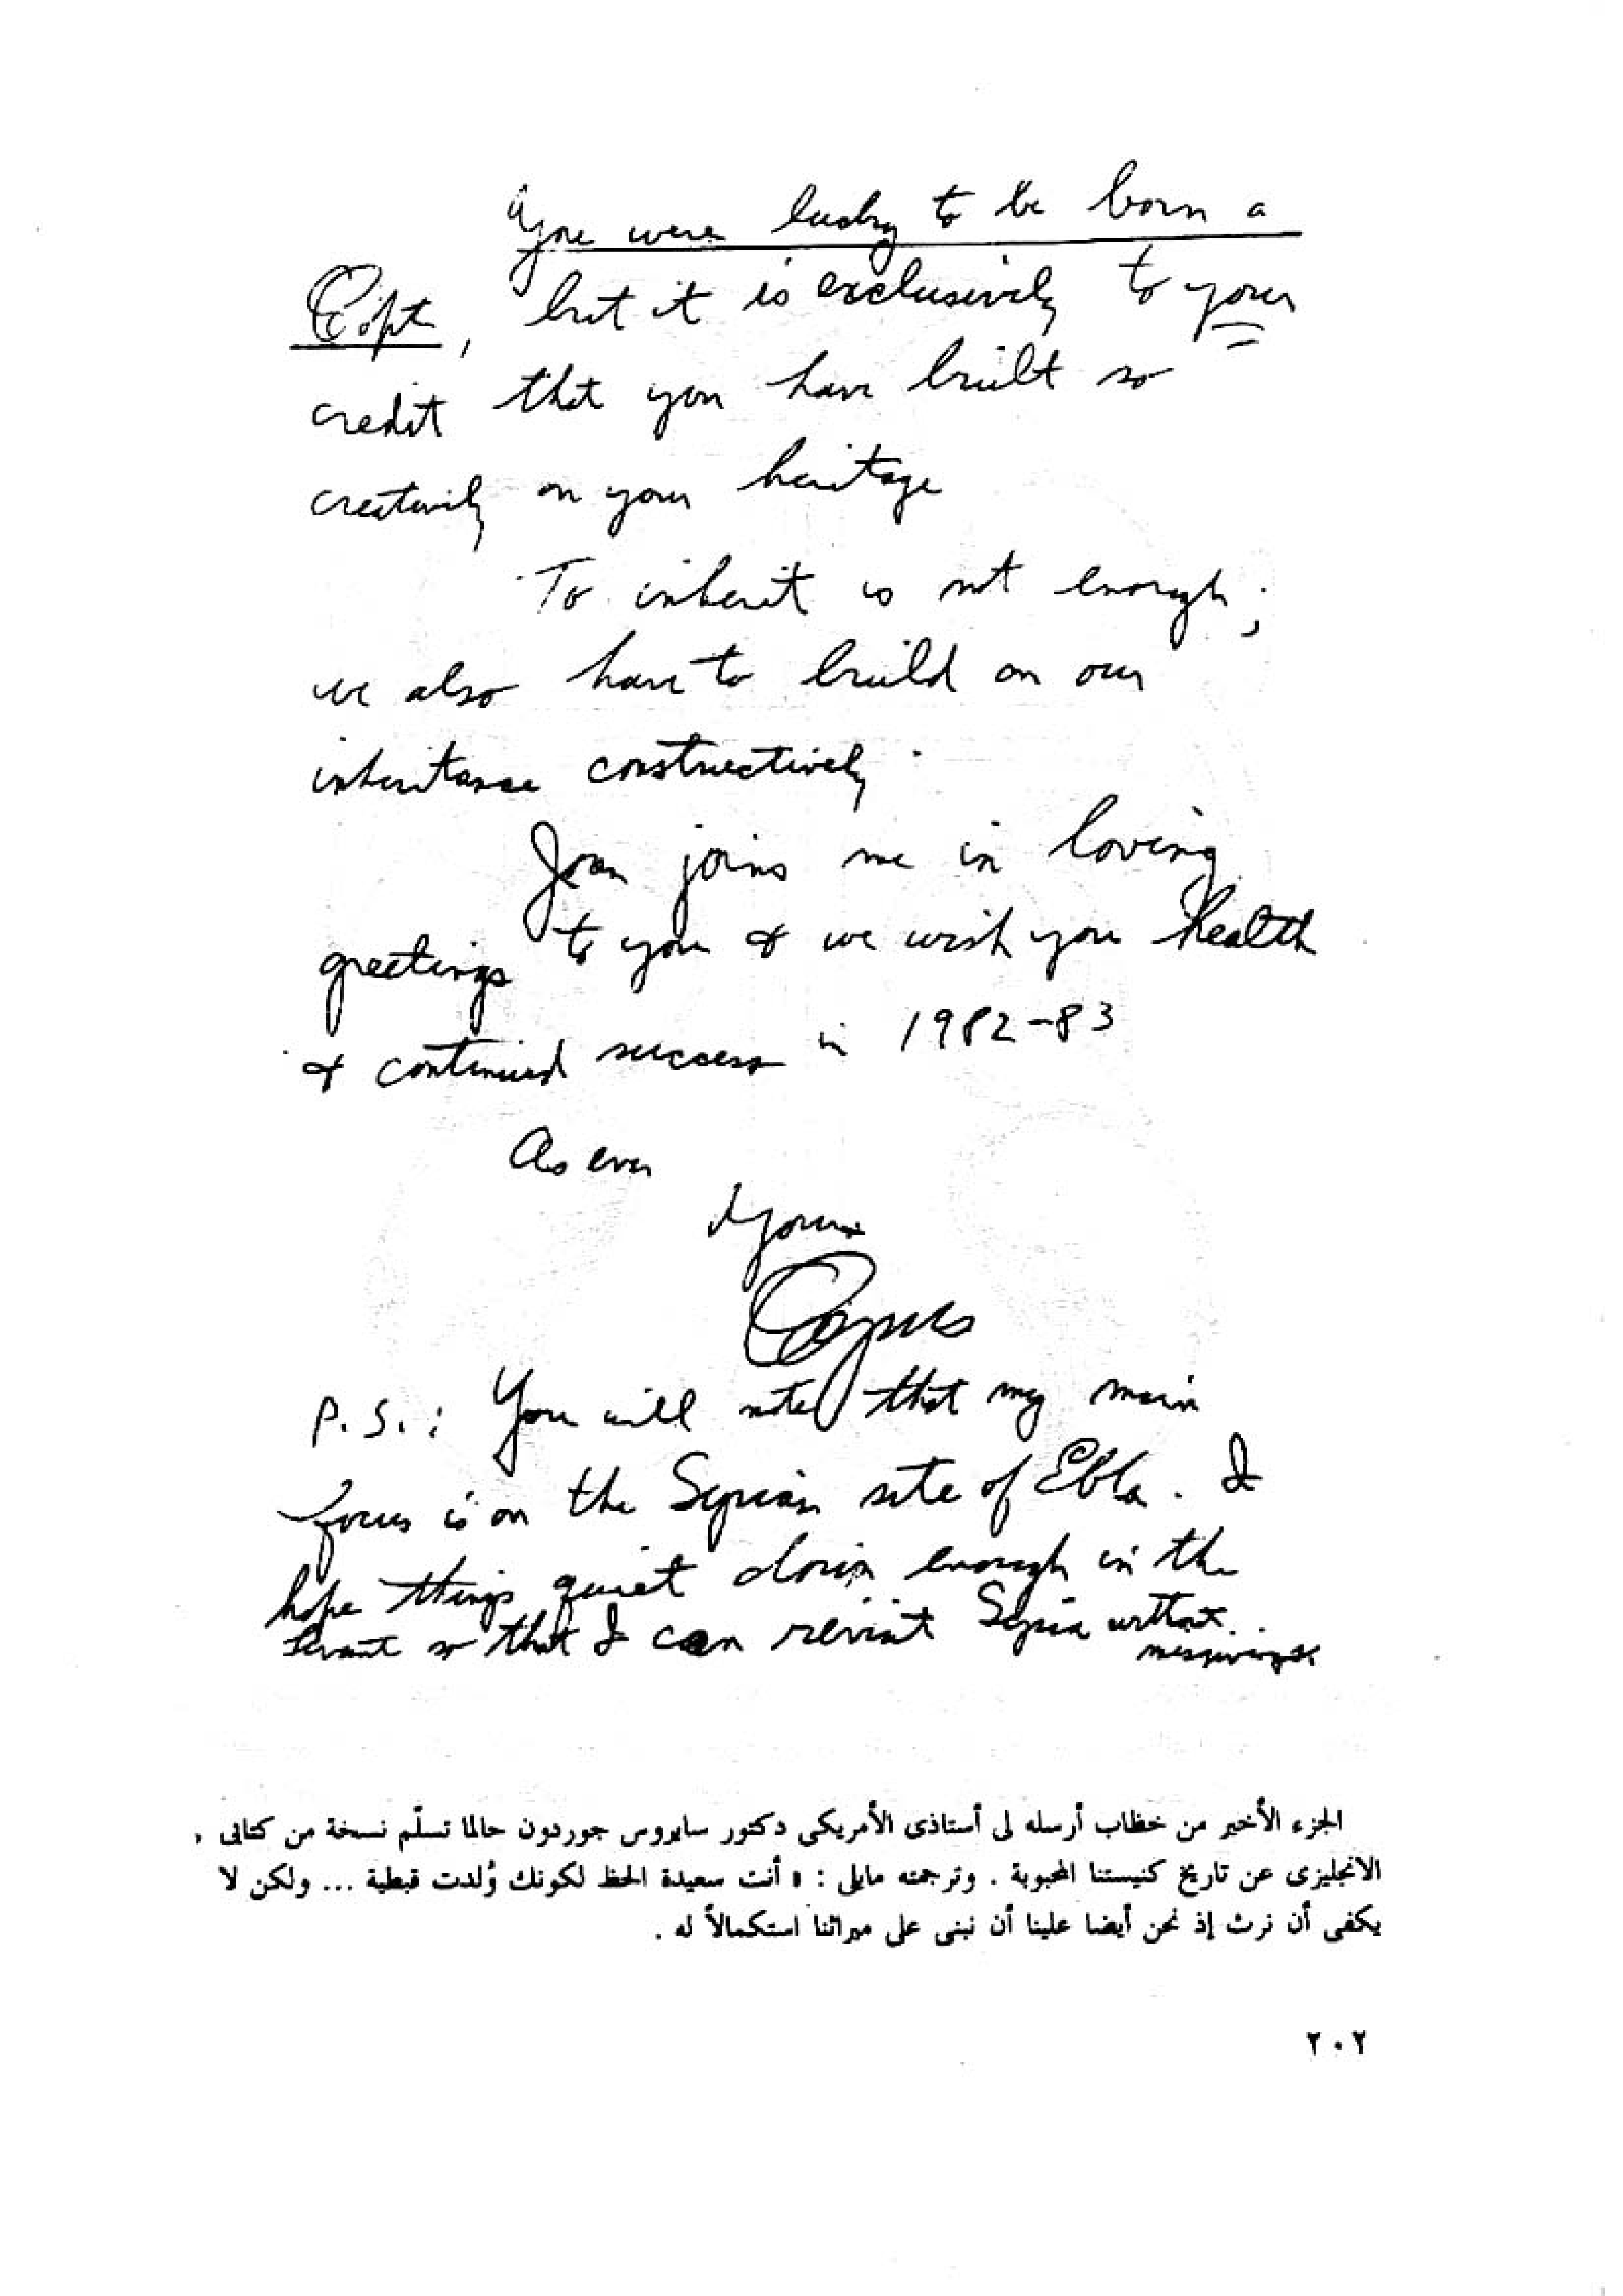 "You were lucky to be born a
Copt, but it is exclusively to your
credit that you have built so
creatively on your heritage
To inherit is not enough;
we also have to build on our
inheritance constructively.
Joan joins me in loving
greetings to you & we wish you health
& continued success in 1982-83
As ever
Yours
Cyrus
P.S.: You will note that my main
focus is on the Syrian site of Ebla. I
hope things quiet down enough in the
Levant so that I can revisit Syria without
misgivings
الجزء الأخير من خطاب أرسله لى أستاذى الأمريكى دكتور سايروس جوردون حالما تسلّم نسخة من كتابى ,
الانجليزى عن تاريخ كنيستنا المحبوبة . وترجمته مايلى : « أنت سعيدة الحظ لكونك وُلدت قبطية ... ولكن لا
يكفى أن نرث إذ نحن أيضا علينا أن نبنى على ميراثنا استكمالاً له .
٢٠٢